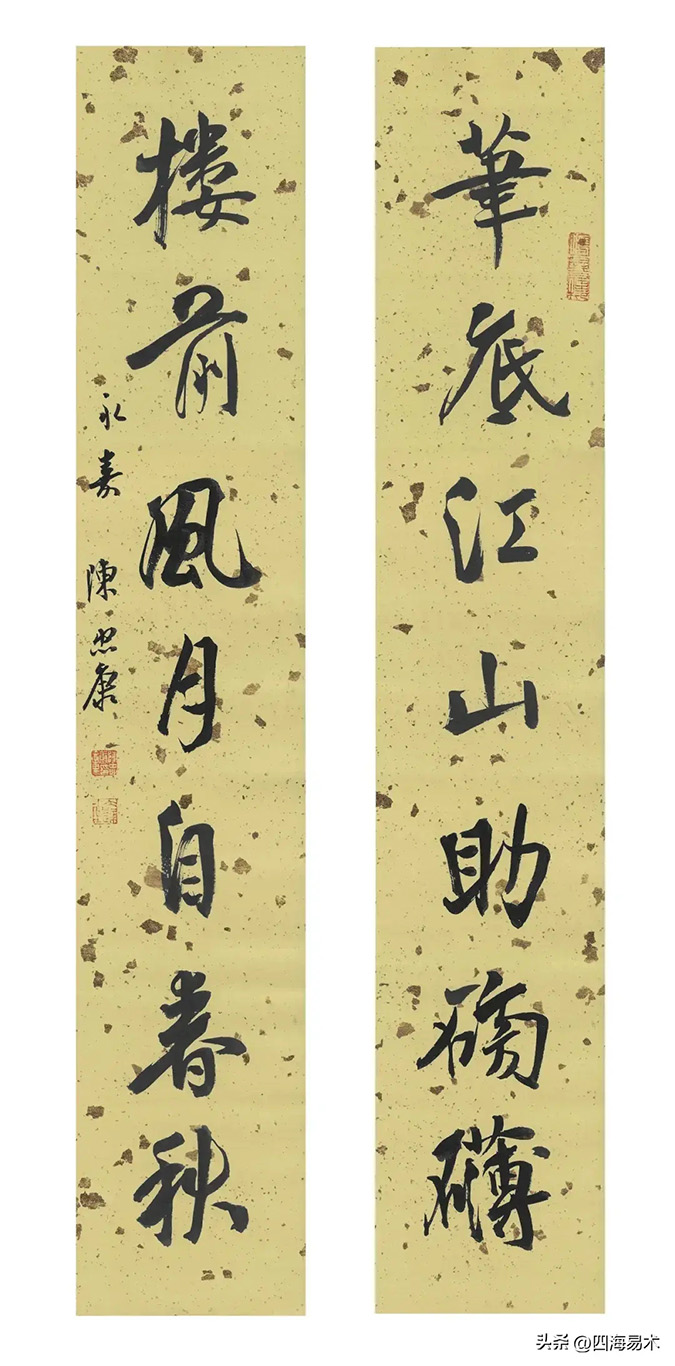 筆底江山助磅礴
楼前風月自春秋
永嘉 陳忠康
头条 @四海易术